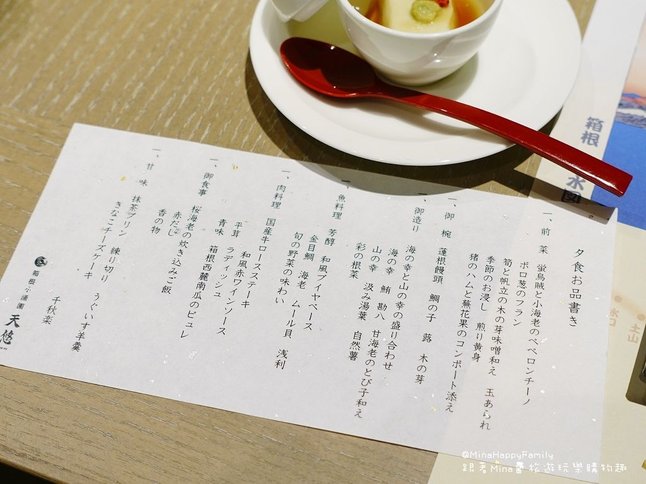 夕食お品書き
一、前菜 蛍烏賊と小海老のペペロンチーノ
ポロ葱のフラン
筍と帆立の木の芽味噌和え 玉あられ
季節のお浸し 煎り黄身
猪のハムと蕪花果のコンポート添え
一、御椀 蓬根饅頭 鯛の子 蕗 木の芽
一、御造り 海の幸と山の幸の盛り合わせ
海の幸 鮪 勘八 甘海老のとび子和え
山の幸 汲み湯葉 自然薯
彩の根菜
一、魚料理 芳醇 和風ブイヤベース
金目鯛 海老 ムール貝 浅利
旬の野菜の味わい
一、肉料理 国産牛ロースステーキ
和風赤ワインソース
平茸 ラディッシュ
青味 箱根西麓南瓜のピュレ
一、御食事 桜海老の炊き込みご飯
赤だし
香の物
一、甘味 抹茶プリン 練り切り うぐいす羊羹
きなこチーズケーキ
千秋楽
箱根小涌園
天悠
箱根
水図
土山
水口
@MinaHappyFamily
跟著Mina醬旅遊玩樂購物趣